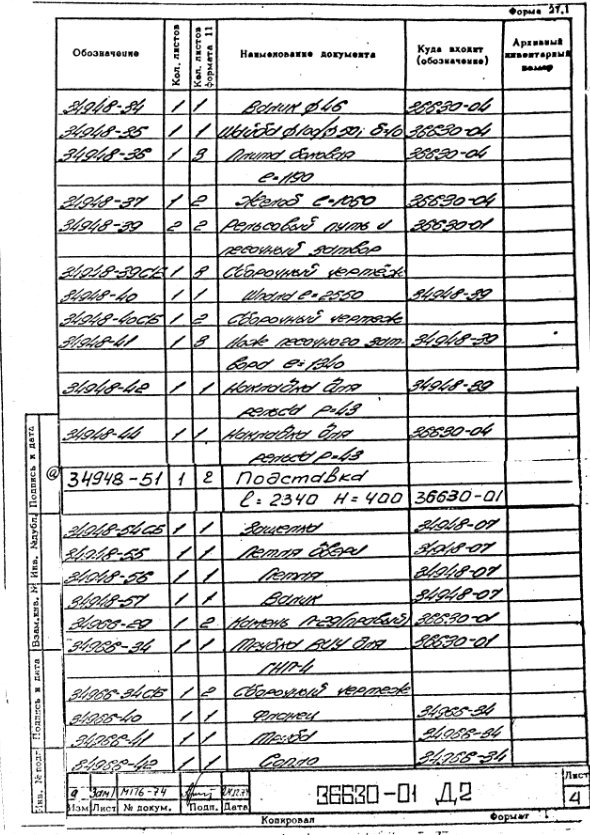 Форма 27.1
Обозначение Кол. листов Кол. листов формата 11 Наименование документа Куда входит (обозначение) Архивный инвентарный номер
34948-34 1 1 Валик ф46 36630-04
34948-35 1 1 Шайба 36630-04
34948-36 1 3 Плита боковая 36630-04
ℓ=1190
34948-37 1 2 Желоб ℓ=1050 36630-04
34948-39 2 2 Рельсовый путь и 36630-01
песочный затвор
34948-39СБ 1 3 Сборочный чертеж
34948-40 1 1 Шпала ℓ=2550 34948-39
34948-40СБ 1 2 Сборочный чертеж
34948-41 1 3 Нож песочного зат- 34948-39
вора ℓ=1340
34948-42 1 1 Накладка для 34948-39
рельса Р=43
34948-44 1 1 Накладка для 36630-04
рельса Р=43
а 34948-51 1 2 Подставка
ℓ=2340 Н=400 36630-01
34948-54СБ 1 1 Защелка 34948-07
34948-55 1 1 Петля двери 34948-07
34948-56 1 1 Петля 34948-07
34948-57 1 1 Валик 34948-07
34966-29 1 2 Камень 36630-01
34966-34 1 1 Трубка для 36630-01
ГНП-4
34966-34СБ 1 2 Сборочный чертеж
34966-40 1 1 Фланец 34966-34
34966-41 1 1 Труба 34966-34
34966-42 1 1 Сопло 34966-34
Инв. № подл. Подпись и дата Взам. инв. № Инв. № дубл. Подпись и дата
а Зам МП6-74
Изм Лист № докум. Подп. Дата
36630-01 Д2
Лист
4
Копировал Формат